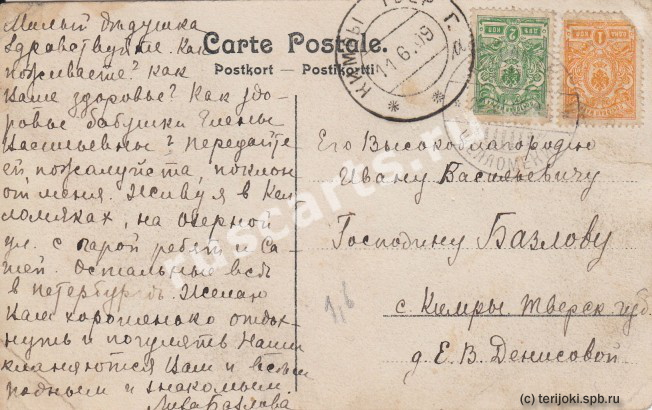 Милый дѣдушка
здравствуйте. Как
поживаете? Как
Ваше здоровье? Как здо-
ровье бабушки Елены
Васильевны? Передайте
ей, пожалуйста, поклон
от меня. Живу я в Кел-
ломяках, на озерной
ул. с
Остальные всѣ
в Петербургѣ. Желаю
Вам хорошенько отдох-
нуть и погулять. Наши
кланяются Вам и всѣм
родным и знакомым.
Базлова
Carte Postale.
Postkort — Postikortti
КИМРЫ ТВЕР. Г.
11.6.09
а
2
1
Его Высокоблагородию
Ивану Васильевичу
Господину Базлову
с. Кимры Тверск. губ.
д. Е. В. Денисовой
1,6
ruscarts.ru
(c) terijoki.spb.ru